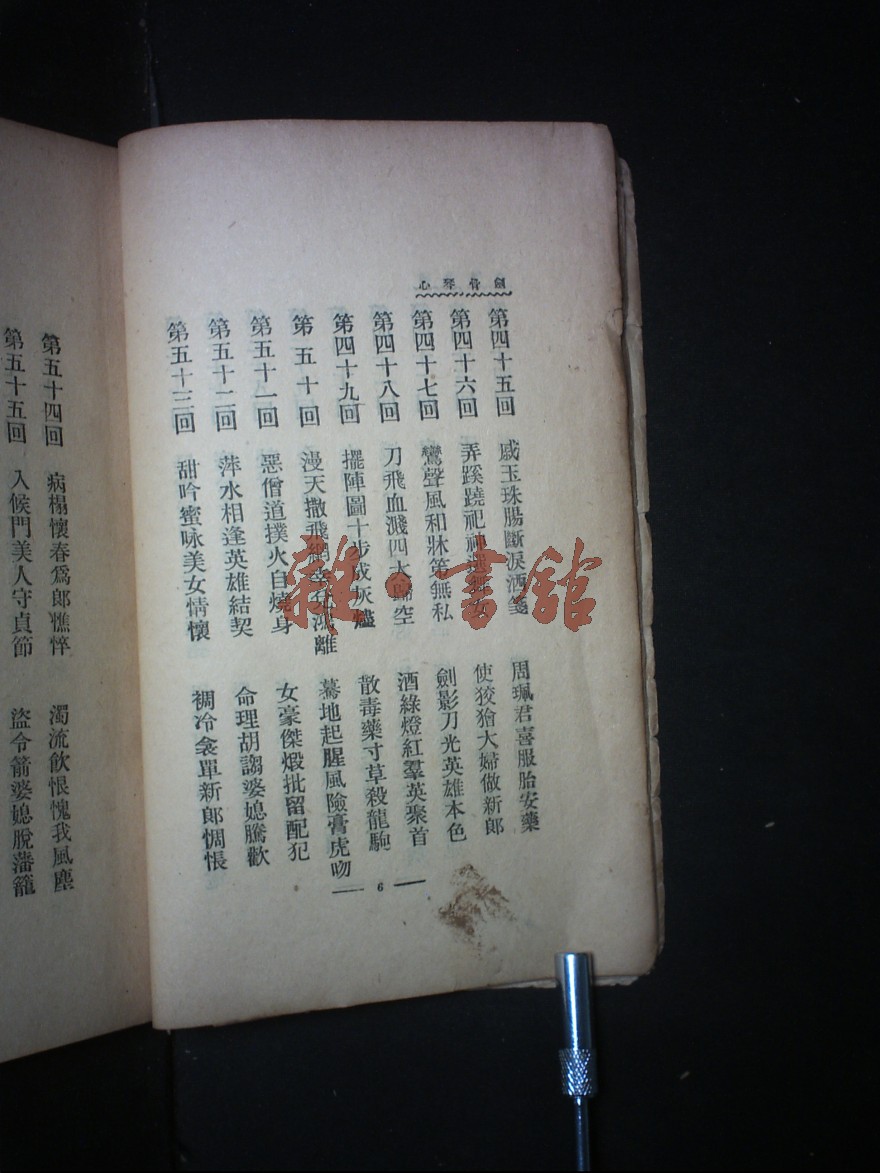 劍骨琴心
第四十五回 戚玉珠腸斷淚洒箋 周珮君喜服胎安藥
第四十六回 弄蹊蹺祀神選舞女 使狡獪大婦做新郎
第四十七回 鸞聲風和牀笫無私 劍影刀光英雄本色
第四十八回 刀飛血濺四大歸空 酒綠燈紅羣英聚首
第四十九回 擺陣圖十步成灰燼 散毒藥寸草殺龍駒
第五十回 漫天撒飛網 離 驀地起腥風險膏虎吻
第五十一回 惡僧道撲火自燒身 女豪傑煅批留配犯
第五十二回 萍水相逢英雄結契 命理胡謅婆媳騰歡
第五十三回 甜吟蜜咏美女情懷 裯冷衾單新郎惆悵
6
第五十四回 病榻懷春爲郎憔悴 濁流飲恨愧我風塵
第五十五回 入候門美人守貞節 盜令箭婆媳脫藩籠
雜·書館